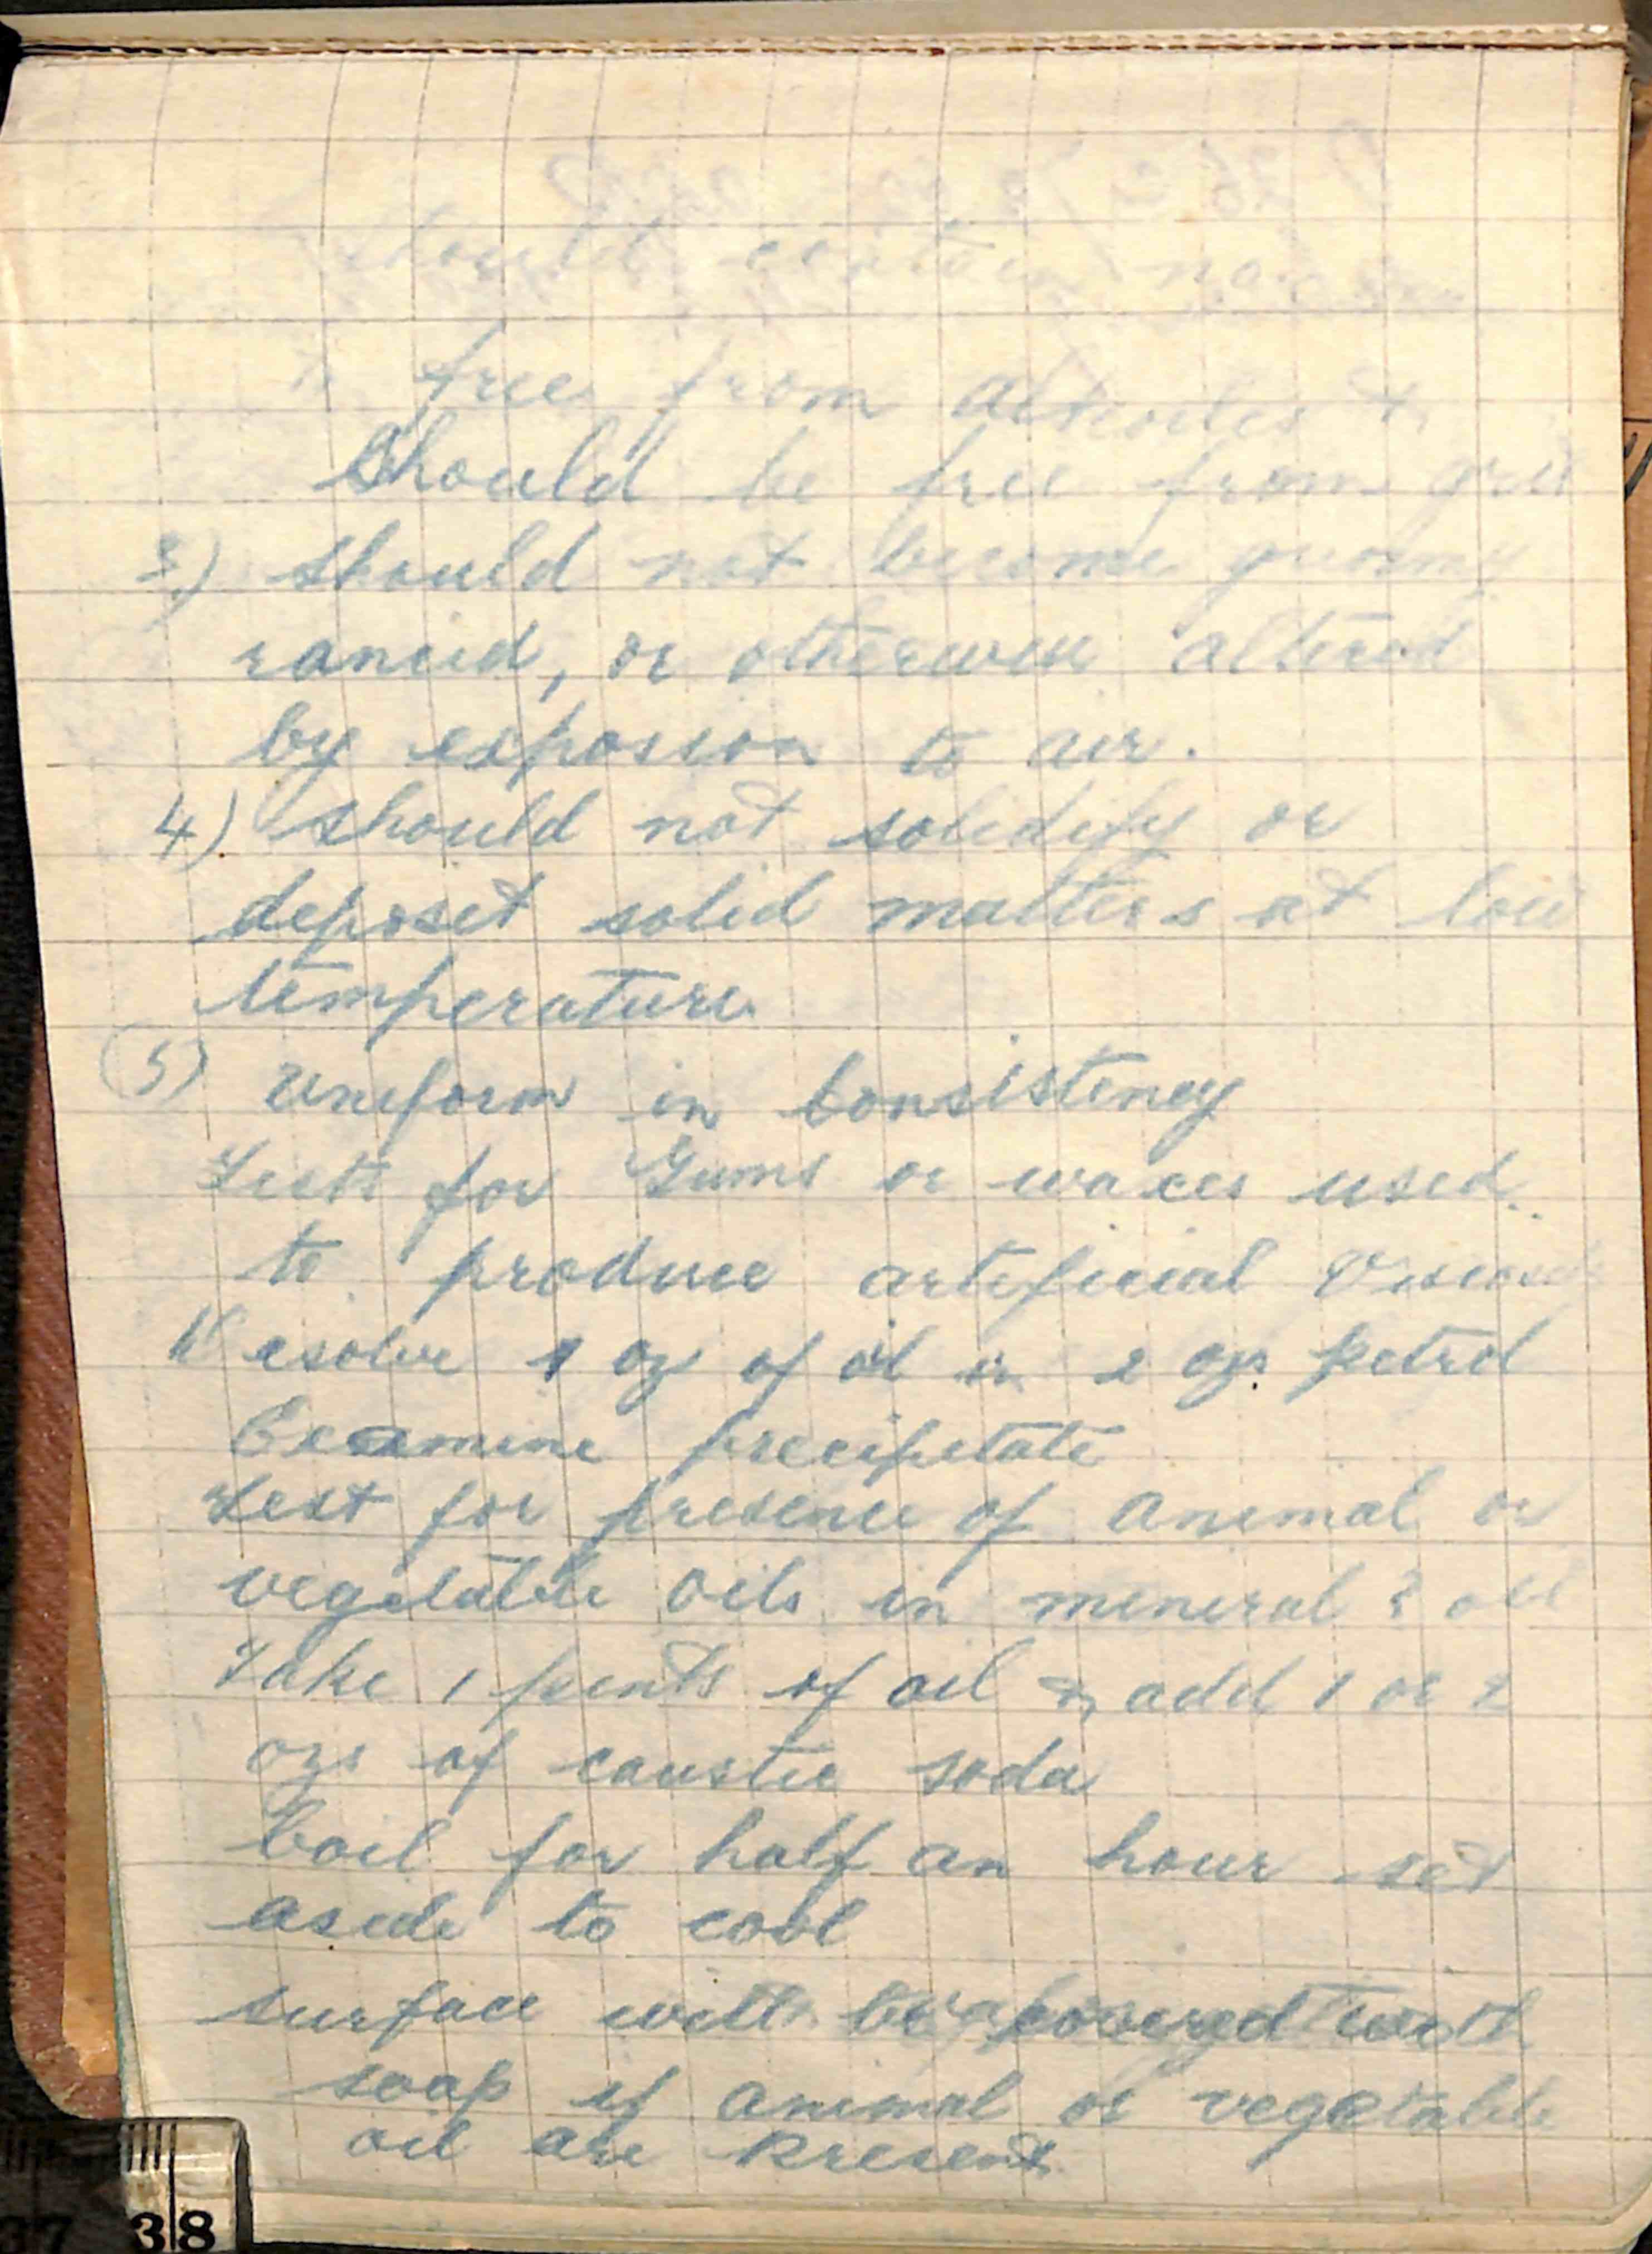 should contain no
free from alkalies &
Should be free from grit
3) should not become gummy
rancid, or otherwise altered
by exposion to air.
4) should not solidify or
deposit solid matters at low
temperature
5) Uniform in Consistency
Tests for Gums or waxes used
to produce artificial
Desolve 1 oz of oil in 2 ozs petrol
Examine precipitate
Test for presence of animal or
vegetable oils in mineral oil
Take 1 pints of oil & add 1 or 2
ozs of caustic soda
boil for half an hour set
aside to cool
surface will be covered with
soap if animal or vegetable
oil are present
38